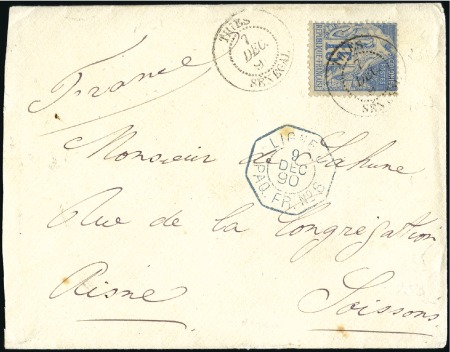 THIES
7
DEC
9
SENEGAL
France
LIGNE
9
DEC
90
PAQ. FR. Nº 8
Monsieur de Lahune
Rue de la Congrégation
Aisne Soissons